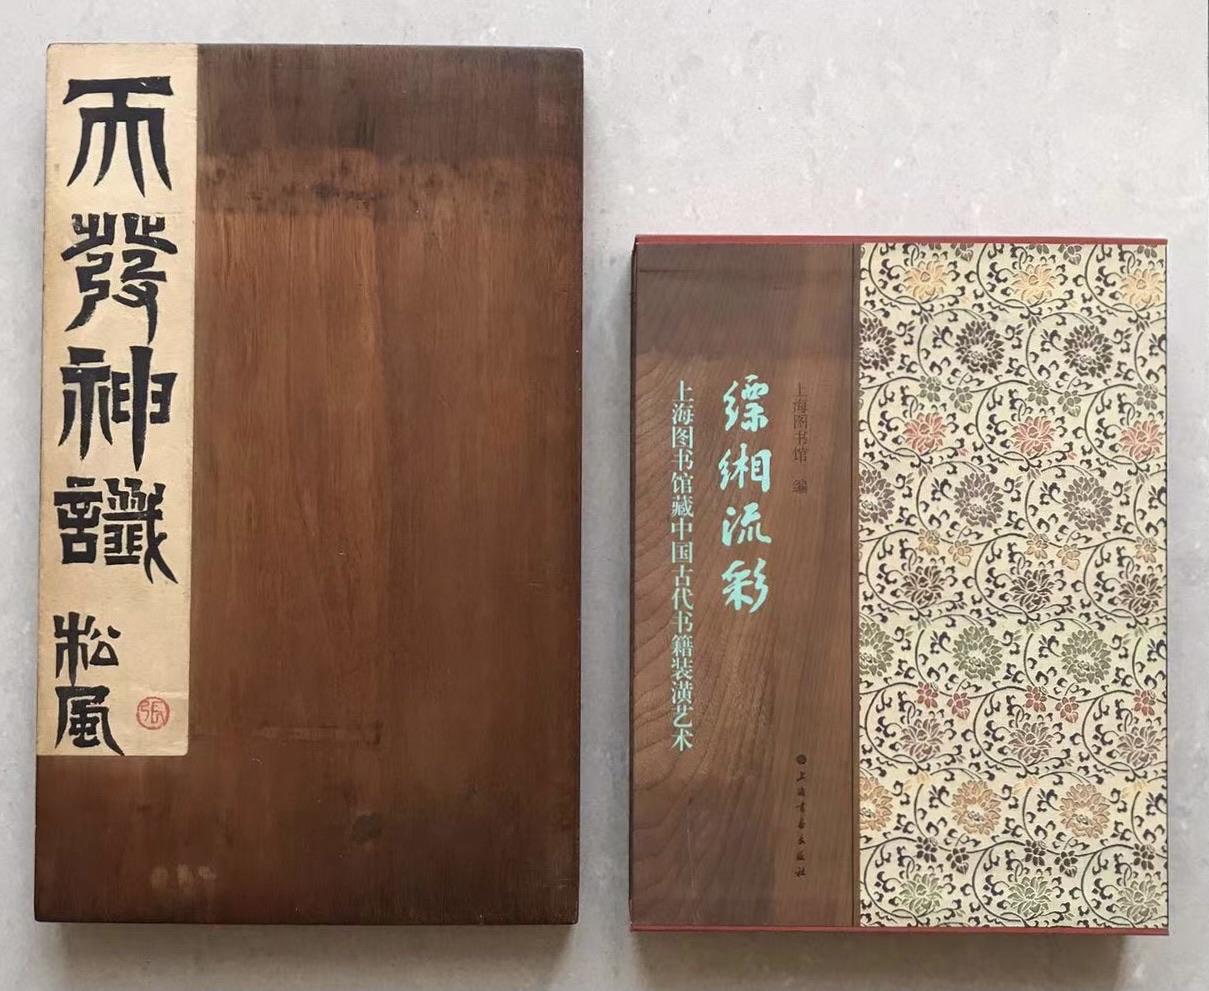 天發神讖
松風
張
上海图书馆 编
缥缃流彩
上海图书馆藏中国古代书籍装潢艺术
上海書畫出版社